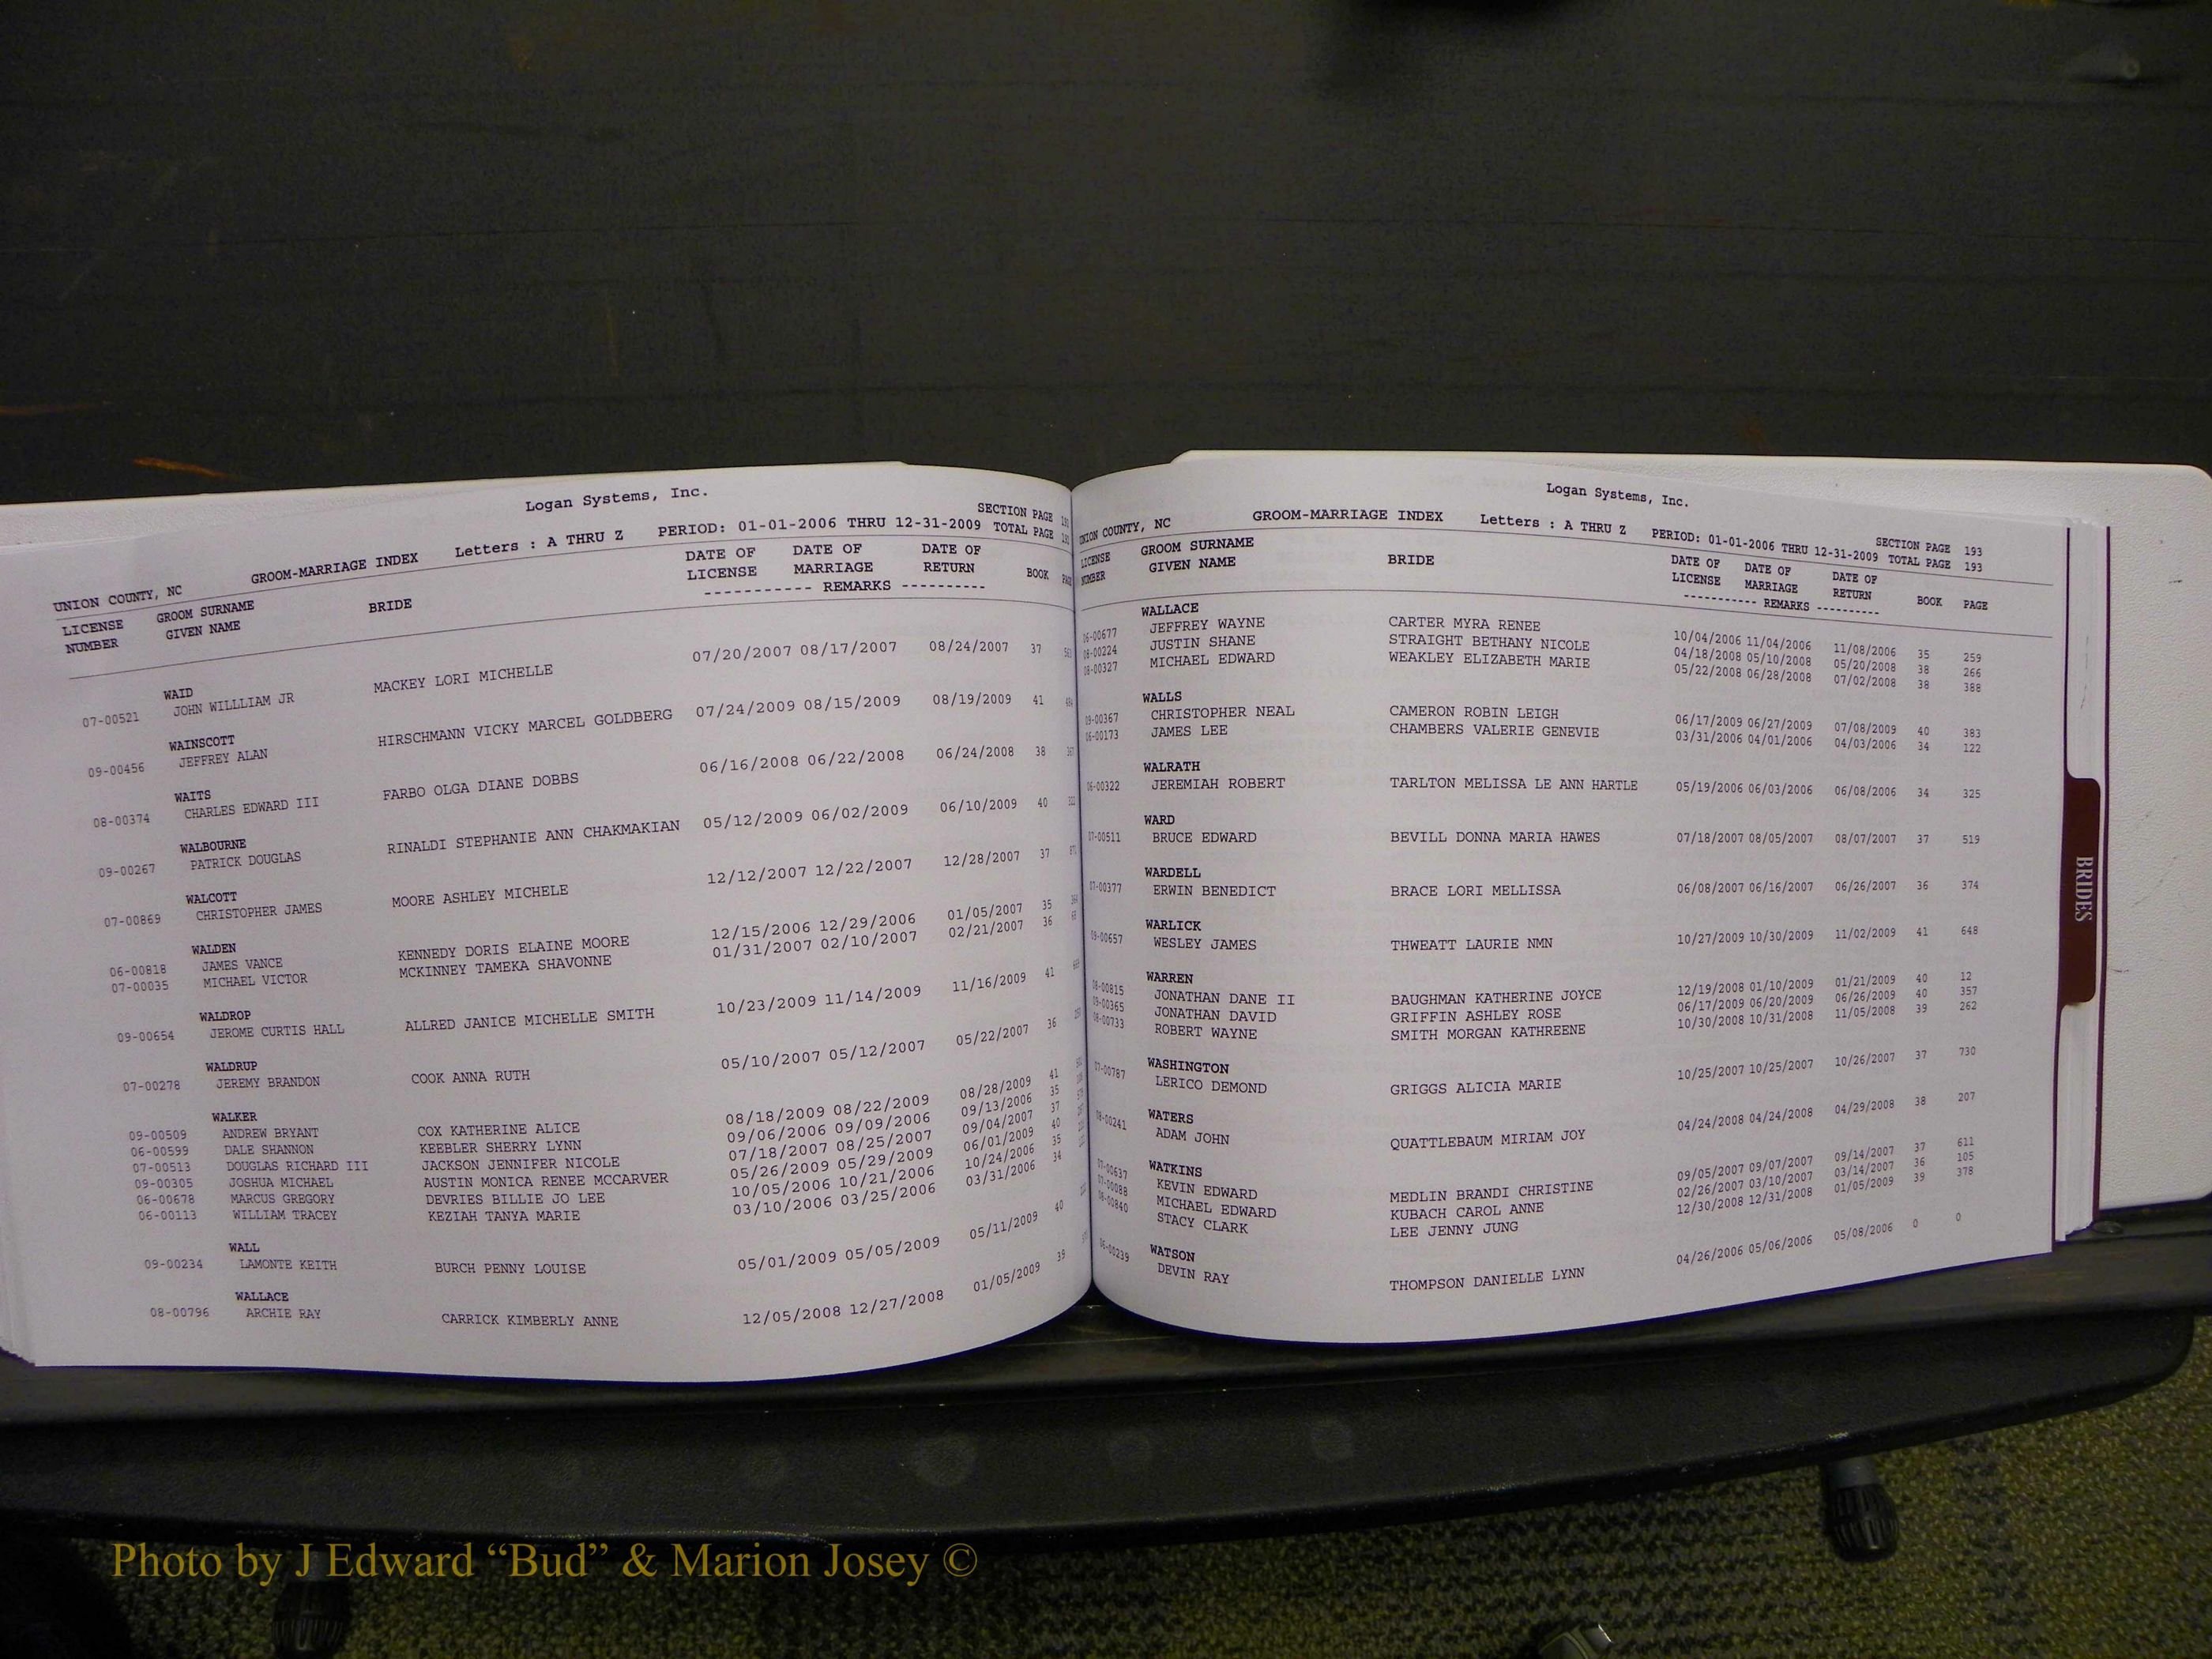 Logan Systems, Inc.
SECTION PAGE
UNION COUNTY, NC GROOM-MARRIAGE INDEX Letters : A THRU Z PERIOD: 01-01-2006 THRU 12-31-2009 TOTAL PAGE
LICENSE NUMBER GROOM SURNAME GIVEN NAME BRIDE DATE OF LICENSE DATE OF MARRIAGE DATE OF RETURN BOOK
----------- REMARKS ----------
WAID
07-00521 JOHN WILLLIAM JR MACKEY LORI MICHELLE 07/20/2007 08/17/2007 08/24/2007 37
WAINSCOTT
09-00456 JEFFREY ALAN HIRSCHMANN VICKY MARCEL GOLDBERG 07/24/2009 08/15/2009 08/19/2009 41
WAITS
08-00374 CHARLES EDWARD III FARBO OLGA DIANE DOBBS 06/16/2008 06/22/2008 06/24/2008 38
WALBOURNE
09-00267 PATRICK DOUGLAS RINALDI STEPHANIE ANN CHAKMAKIAN 05/12/2009 06/02/2009 06/10/2009 40
WALCOTT
07-00869 CHRISTOPHER JAMES MOORE ASHLEY MICHELE 12/12/2007 12/22/2007 12/28/2007 37
WALDEN
06-00818 JAMES VANCE KENNEDY DORIS ELAINE MOORE 12/15/2006 12/29/2006 01/05/2007 35
07-00035 MICHAEL VICTOR MCKINNEY TAMEKA SHAVONNE 01/31/2007 02/10/2007 02/21/2007 36
WALDROP
09-00654 JEROME CURTIS HALL ALLRED JANICE MICHELLE SMITH 10/23/2009 11/14/2009 11/16/2009 41
WALDRUP
07-00278 JEREMY BRANDON COOK ANNA RUTH 05/10/2007 05/12/2007 05/22/2007 36
WALKER
09-00509 ANDREW BRYANT COX KATHERINE ALICE 08/18/2009 08/22/2009 08/28/2009 41
06-00599 DALE SHANNON KEEBLER SHERRY LYNN 09/06/2006 09/09/2006 09/13/2006 35
07-00513 DOUGLAS RICHARD III JACKSON JENNIFER NICOLE 07/18/2007 08/25/2007 09/04/2007 37
09-00305 JOSHUA MICHAEL AUSTIN MONICA RENEE MCCARVER 05/26/2009 05/29/2009 06/01/2009 40
06-00678 MARCUS GREGORY DEVRIES BILLIE JO LEE 10/05/2006 10/21/2006 10/24/2006 35
06-00113 WILLIAM TRACEY KEZIAH TANYA MARIE 03/10/2006 03/25/2006 03/31/2006 34
WALL
09-00234 LAMONTE KEITH BURCH PENNY LOUISE 05/01/2009 05/05/2009 05/11/2009 40
WALLACE
08-00796 ARCHIE RAY CARRICK KIMBERLY ANNE 12/05/2008 12/27/2008 01/05/2009 39
Logan Systems, Inc.
SECTION PAGE 193
UNION COUNTY, NC GROOM-MARRIAGE INDEX Letters : A THRU Z PERIOD: 01-01-2006 THRU 12-31-2009 TOTAL PAGE 193
LICENSE NUMBER GROOM SURNAME GIVEN NAME BRIDE DATE OF LICENSE DATE OF MARRIAGE DATE OF RETURN BOOK PAGE
----------- REMARKS ----------
WALLACE
06-00677 JEFFREY WAYNE CARTER MYRA RENEE 10/04/2006 11/04/2006 11/08/2006 35 259
08-00224 JUSTIN SHANE STRAIGHT BETHANY NICOLE 04/18/2008 05/10/2008 05/20/2008 38 266
08-00327 MICHAEL EDWARD WEAKLEY ELIZABETH MARIE 05/22/2008 06/28/2008 07/02/2008 38 388
WALLS
09-00367 CHRISTOPHER NEAL CAMERON ROBIN LEIGH 06/17/2009 06/27/2009 07/08/2009 40 383
06-00173 JAMES LEE CHAMBERS VALERIE GENEVIE 03/31/2006 04/01/2006 04/03/2006 34 122
WALRATH
06-00322 JEREMIAH ROBERT TARLTON MELISSA LE ANN HARTLE 05/19/2006 06/03/2006 06/08/2006 34 325
WARD
07-00511 BRUCE EDWARD BEVILL DONNA MARIA HAWES 07/18/2007 08/05/2007 08/07/2007 37 519
WARDELL
07-00377 ERWIN BENEDICT BRACE LORI MELLISSA 06/08/2007 06/16/2007 06/26/2007 36 374
WARLICK
09-00657 WESLEY JAMES THWEATT LAURIE NMN 10/27/2009 10/30/2009 11/02/2009 41 648
WARREN
08-00815 JONATHAN DANE II BAUGHMAN KATHERINE JOYCE 12/19/2008 01/10/2009 01/21/2009 40 12
09-00365 JONATHAN DAVID GRIFFIN ASHLEY ROSE 06/17/2009 06/20/2009 06/26/2009 40 357
08-00733 ROBERT WAYNE SMITH MORGAN KATHREENE 10/30/2008 10/31/2008 11/05/2008 39 262
WASHINGTON
07-00787 LERICO DEMOND GRIGGS ALICIA MARIE 10/25/2007 10/25/2007 10/26/2007 37 730
WATERS
08-00241 ADAM JOHN QUATTLEBAUM MIRIAM JOY 04/24/2008 04/24/2008 04/29/2008 38 207
WATKINS
07-00637 KEVIN EDWARD MEDLIN BRANDI CHRISTINE 09/05/2007 09/07/2007 09/14/2007 37 611
07-00088 MICHAEL EDWARD KUBACH CAROL ANNE 02/26/2007 03/10/2007 03/14/2007 36 105
08-00840 STACY CLARK LEE JENNY JUNG 12/30/2008 12/31/2008 01/05/2009 39 378
WATSON
06-00239 DEVIN RAY THOMPSON DANIELLE LYNN 04/26/2006 05/06/2006 05/08/2006 0 0
BRIDES
Photo by J Edward “Bud” & Marion Josey ©